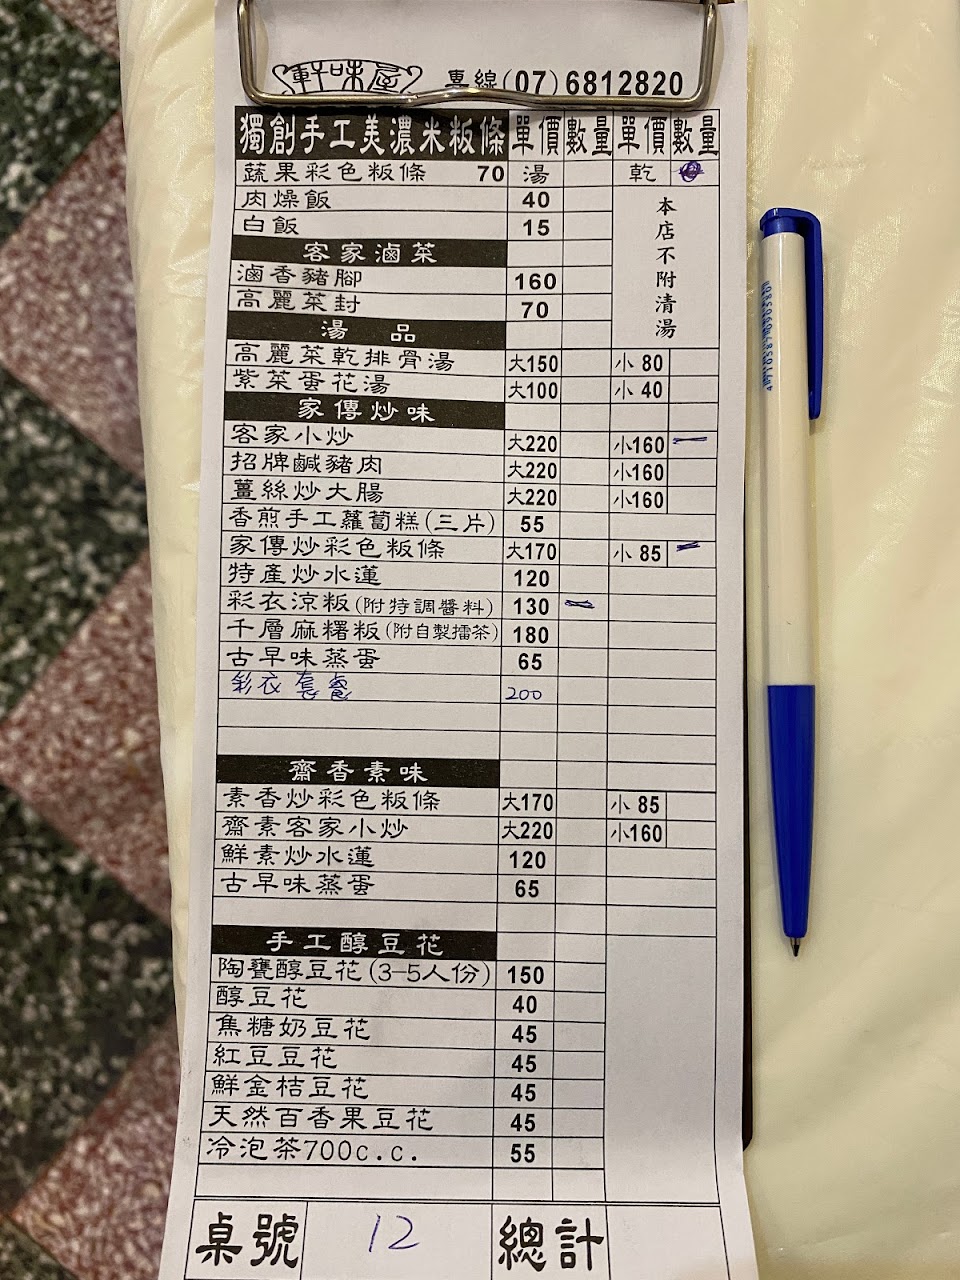 軒味屋 專線(07)6812820
獨創手工美濃米粄條 單價 數量 單價 數量
蔬果彩色粄條 70 湯 乾
肉燥飯 40
白飯 15
本店不附清湯
客家滷菜
滷香豬腳 160
高麗菜封 70
湯品
高麗菜乾排骨湯 大150 小 80
紫菜蛋花湯 大100 小 40
家傳炒味
客家小炒 大220 小160 一
招牌鹹豬肉 大220 小160
薑絲炒大腸 大220 小160
香煎手工蘿蔔糕(三片) 55
家傳炒彩色粄條 大170 小 85 一
特產炒水蓮 120
彩衣涼粄(附特調醬料) 130 一
千層麻糬粄(附自製擂茶) 180
古早味蒸蛋 65
彩衣套餐 200
齋香素味
素香炒彩色粄條 大170 小 85
齋素客家小炒 大220 小160
鮮素炒水蓮 120
古早味蒸蛋 65
手工醇豆花
陶甕醇豆花(3-5人份) 150
醇豆花 40
焦糖奶豆花 45
紅豆豆花 45
鮮金桔豆花 45
天然百香果豆花 45
冷泡茶700c.c. 55
桌號 12 總計